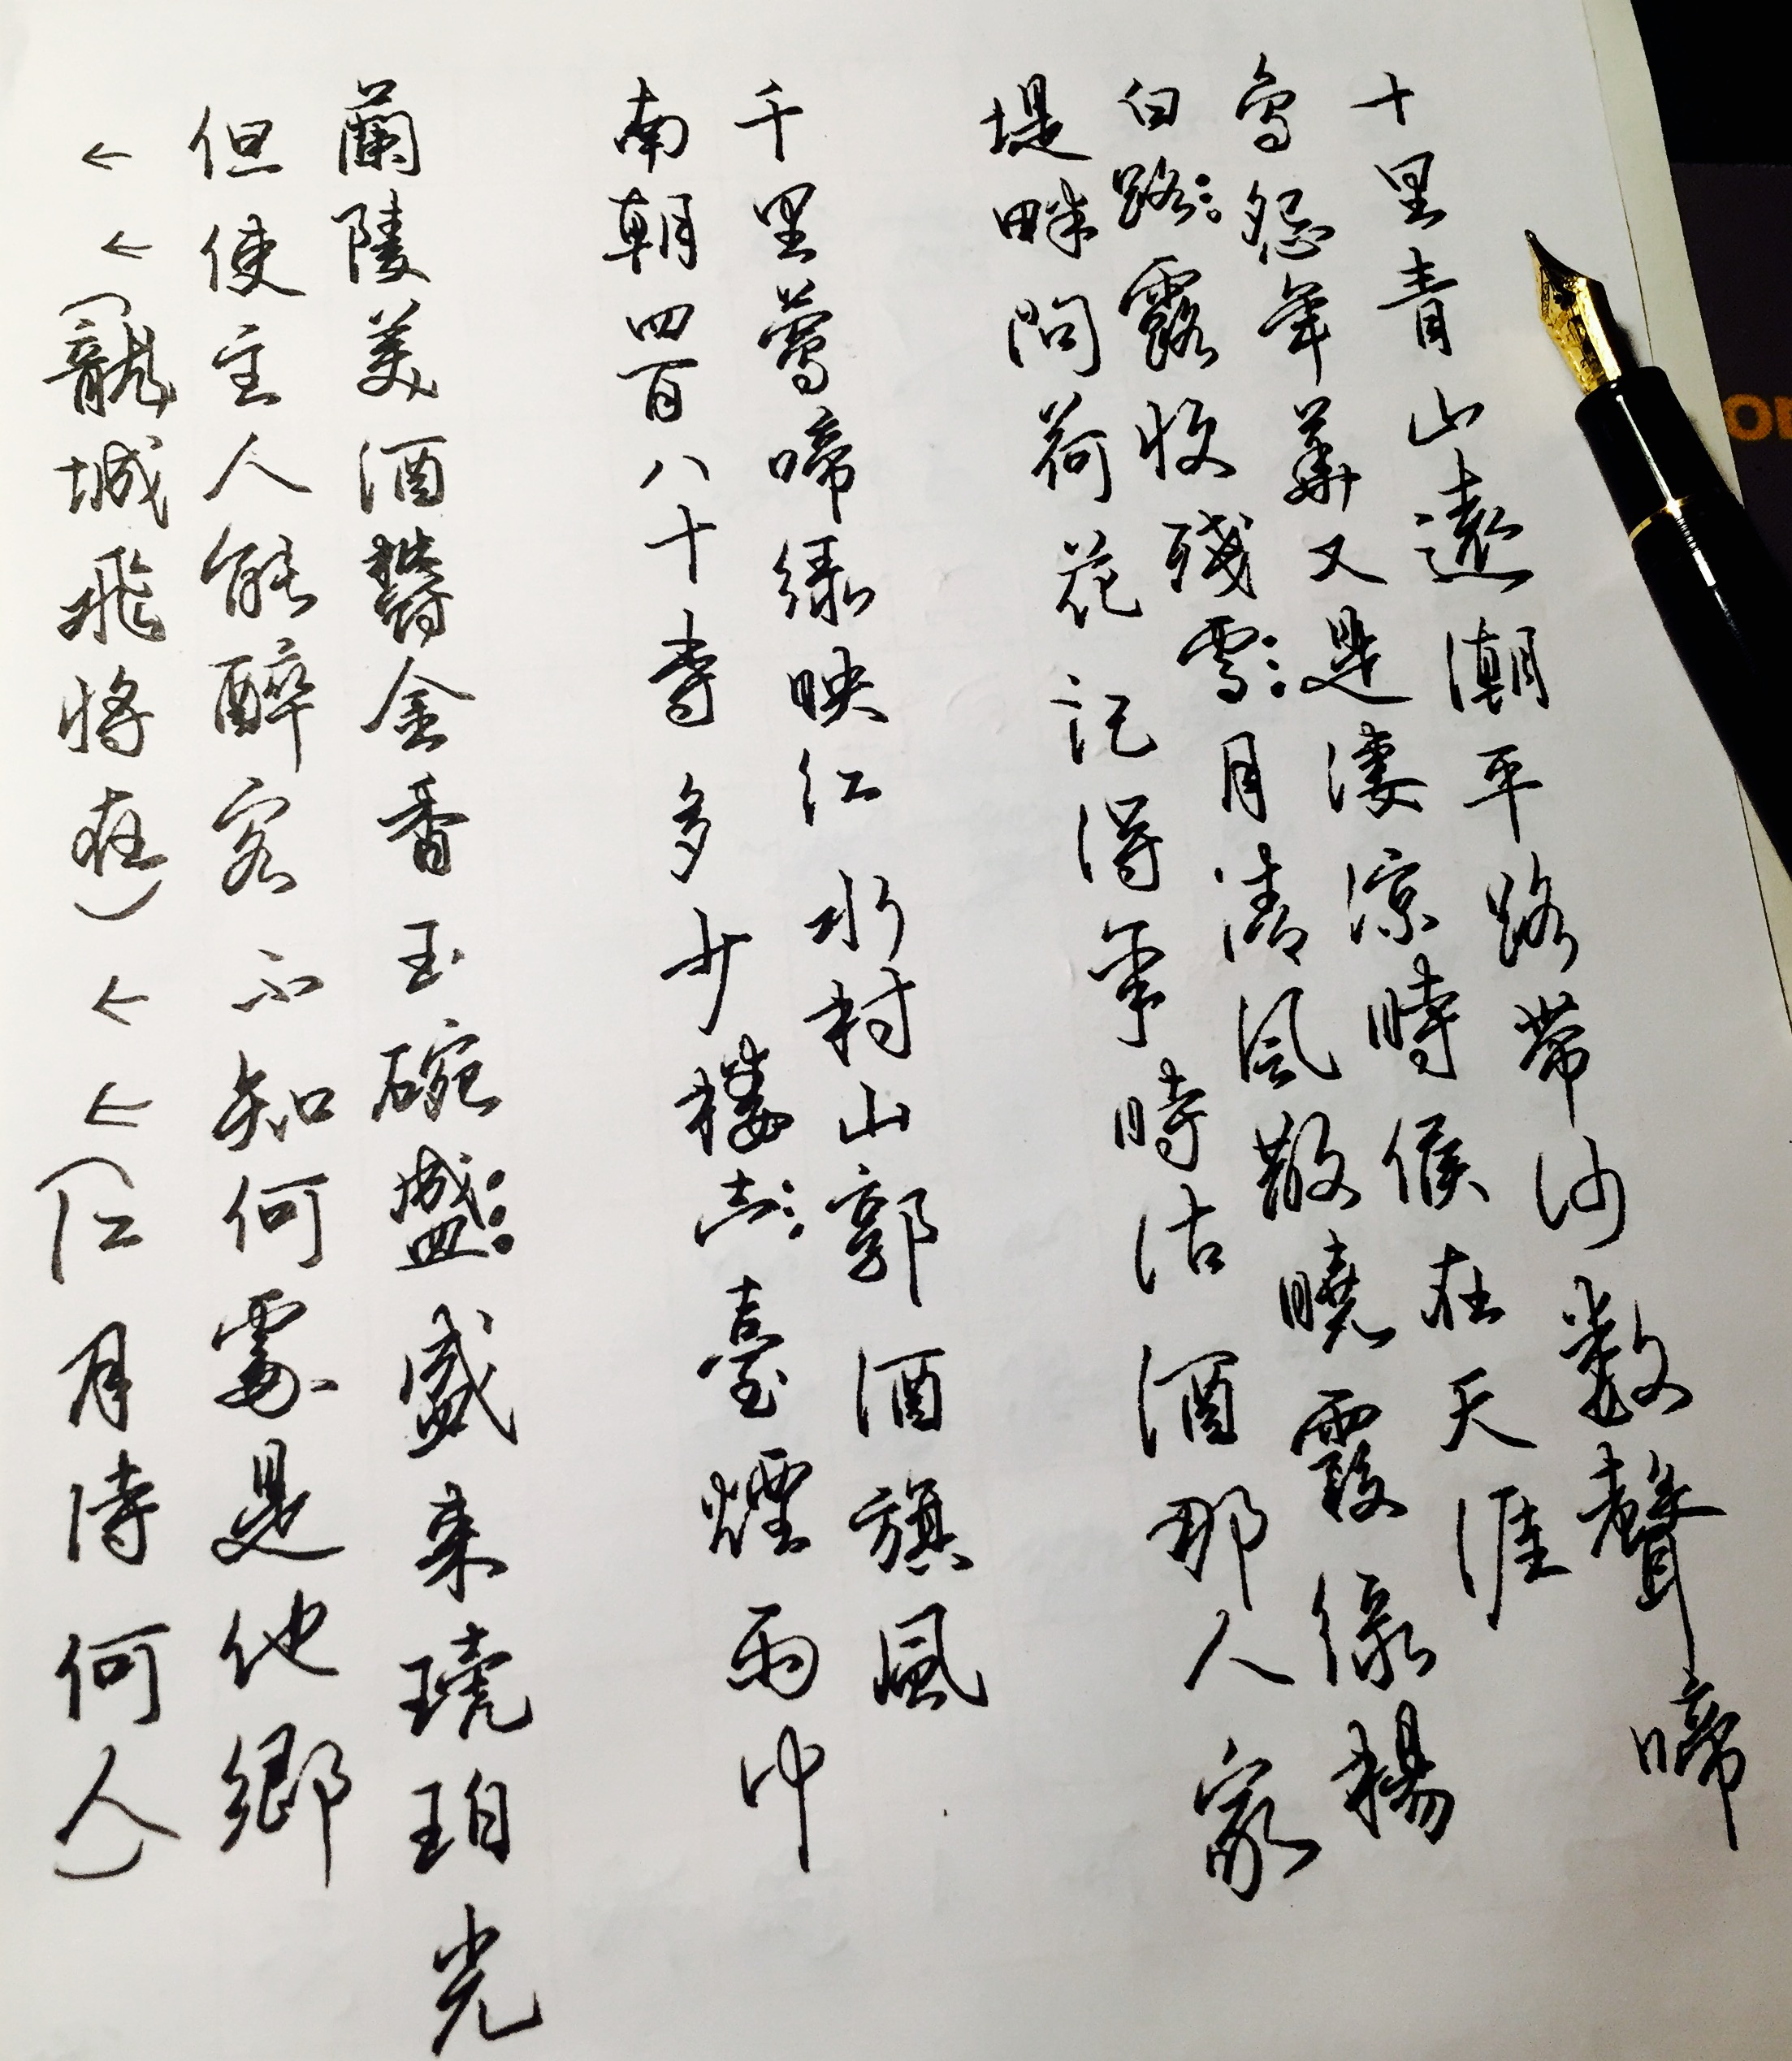 十里青山遠潮平路帶沙數聲啼
鳥怨年華又是淒涼時候在天涯
白路露收殘雪月清風散曉霞綠楊
堤畔問荷花記得年時沽酒那人家
千里鶯啼綠映江水村山郭酒旗風
南朝四百八十寺多少樓臺煙雨中
蘭陵美酒鬱金香玉碗盛盛来琥珀光
但使主人能醉客不知何處是他鄉
← ←（龍城飛將在）← ←（江月待何人）